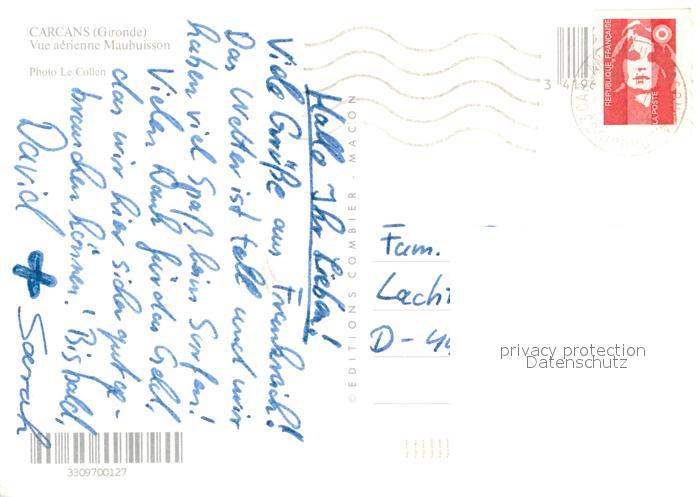 CARCANS (Gironde)
Vue aérienne Maubuisson
Photo Le Collen
Hallo Ihr Lieben!
Viele Grüße aus Frankreich!
Das Wetter ist toll und wir
haben viel Spaß beim Surfen!
Vielen Dank für das Geld,
das wir hier sicher gut ge-
brauchen können! Bis bald,
David + Saerah
3309700127
© EDITIONS COMBIER - MACON
REPUBLIQUE FRANÇAISE
LA POSTE
Fam.
Lachi
D-44
privacy protection
Datenschutz